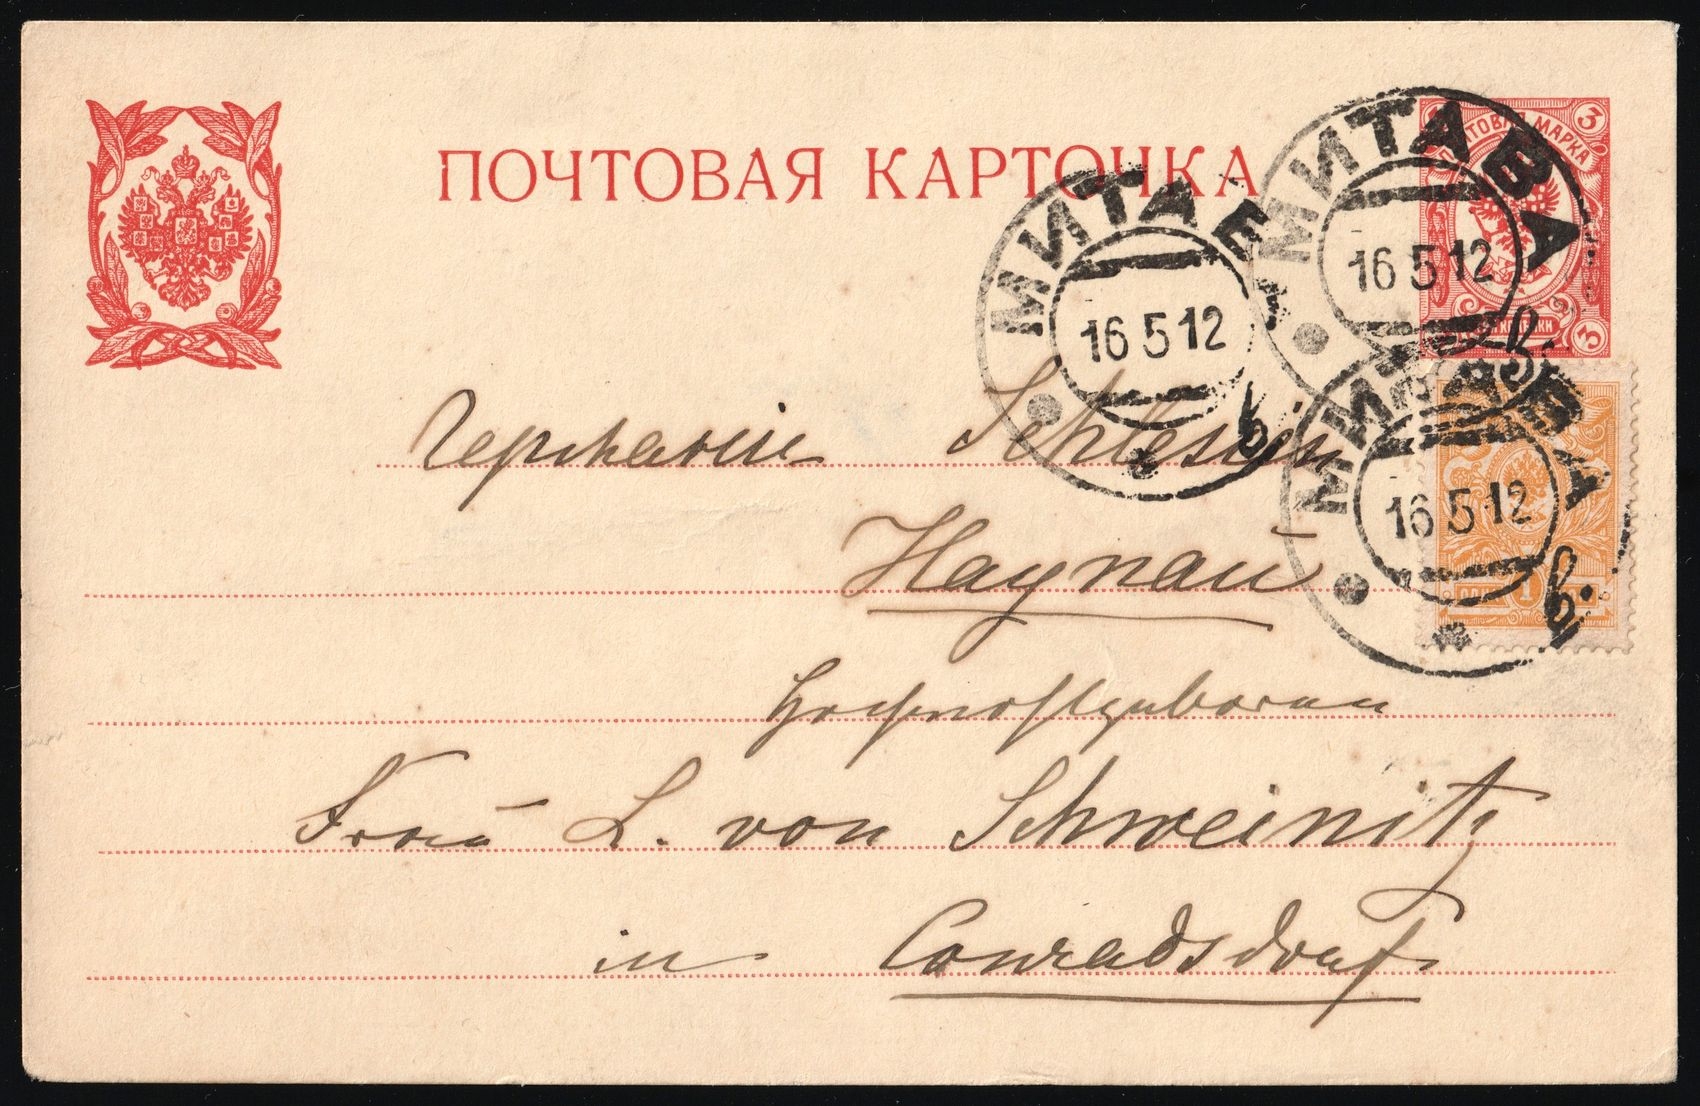 ПОЧТОВАЯ КАРТОЧКА
ПОЧТОВАЯ МАРКА
3
3
МИТАВА
16 5 12
МИТАВА
16 5 12
в
МИТАВА
16 5 12
в
1
Германiя Schlesien
Haynau
Hochwohlgeboren
Frau L. von Schweinitz
in Conradsdorf